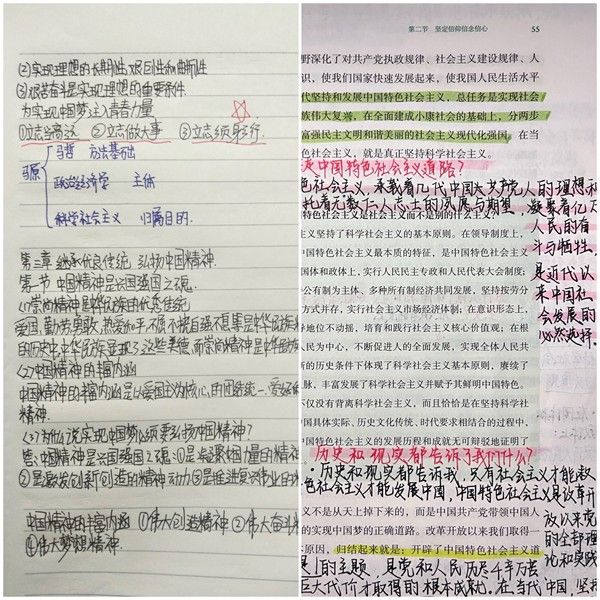 ②实现理想的长期性、艰巨性和曲折性
③艰苦奋斗是实现理想的重要条件.
为实现中国梦注入青春力量
①立志当高远 ②立志做大事 ③立志须躬行.
马哲 方法基础
马原 政治经济学 主体
科学社会主义 归属目的.
第三章 继承优良传统 弘扬中国精神.
第一节 中国精神是兴国强国之魂.
(1)崇尚精神是中华民族的优秀传统
爱国,勤劳勇敢,热爱和平,不屈不挠自强不息等是中华民族
的历史,中华民族呈现了这些美德,而崇尚精神是中华
(2)中国精神的丰富内涵
中国精神的丰富内涵是以爱国主义为核心的团结统一、爱好和
精神.
(3)为什么说实现中国梦必须要弘扬中国精神?
答:中国精神是兴国强国之魂.①是凝聚中国力量的精神
②是激发创新创造的精神动力③是推进复兴伟业的
中国精神的丰富内涵 ①伟大创造精神 ②伟大奋斗
④伟大梦想精神.
第二节 坚定信仰信念信心 55
野深化了对共产党执政规律、社会主义建设规律、人
识,使我们国家快速发展起来,使我国人民生活水平
代坚持和发展中国特色社会主义,总任务是实现社会
族伟大复兴,在全面建成小康社会的基础上,分两步
富强民主文明和谐美丽的社会主义现代化强国。在当
色社会主义,就是真正坚持科学社会主义。
中国特色社会主义道路?
色社会主义,承载着几代中国共产党人的理想和
托着无数仁人志士的夙愿与期望,凝聚着亿万
人民的奋
斗与牺牲,
是近代以
来中国社
会发展的
必然选择.
特色社会主义是社会主义而不是别的什么主义。
主义坚持了科学社会主义的基本原则。在领导制度上,
中国特色社会主义最本质的特征,是中国特色社会主
国体和政体上,实行人民民主专政和人民代表大会制度;
公有制为主体、多种所有制经济共同发展,坚持按劳分
方式并存,实行社会主义市场经济体制;在意识形态上,
导地位不动摇,培育和践行社会主义核心价值观;在根
人民为中心,不断促进人的全面发展,实现全体人民共
新的历史条件下体现了科学社会主义基本原则,赓续了
脉,丰富发展了科学社会主义并赋予其鲜明中国特色。
不仅没有背离科学社会主义,而且恰恰是在坚持科学社
中国具体实际、历史文化传统、时代要求相结合的过程中,
中国特色社会主义的发展历程和成就无可辩驳地证明了
历史和现实都告诉了我们什么?
·历史和现实都告诉我,只有社会主义才能救
色社会主义才能发展中国,中国特色社会主义是改革开
放以来党
的全部理
论和实践
义不是从天上掉下来的,而是中国共产党带领中国人
的实现中国梦的正确道路。改革开放以来我们取得一
本原因,归结起来就是:开辟了中国特色社会主义道
的主题,是党和人民历尽千辛万苦
巨大代价才取得的根本成就.在当代中国,坚持